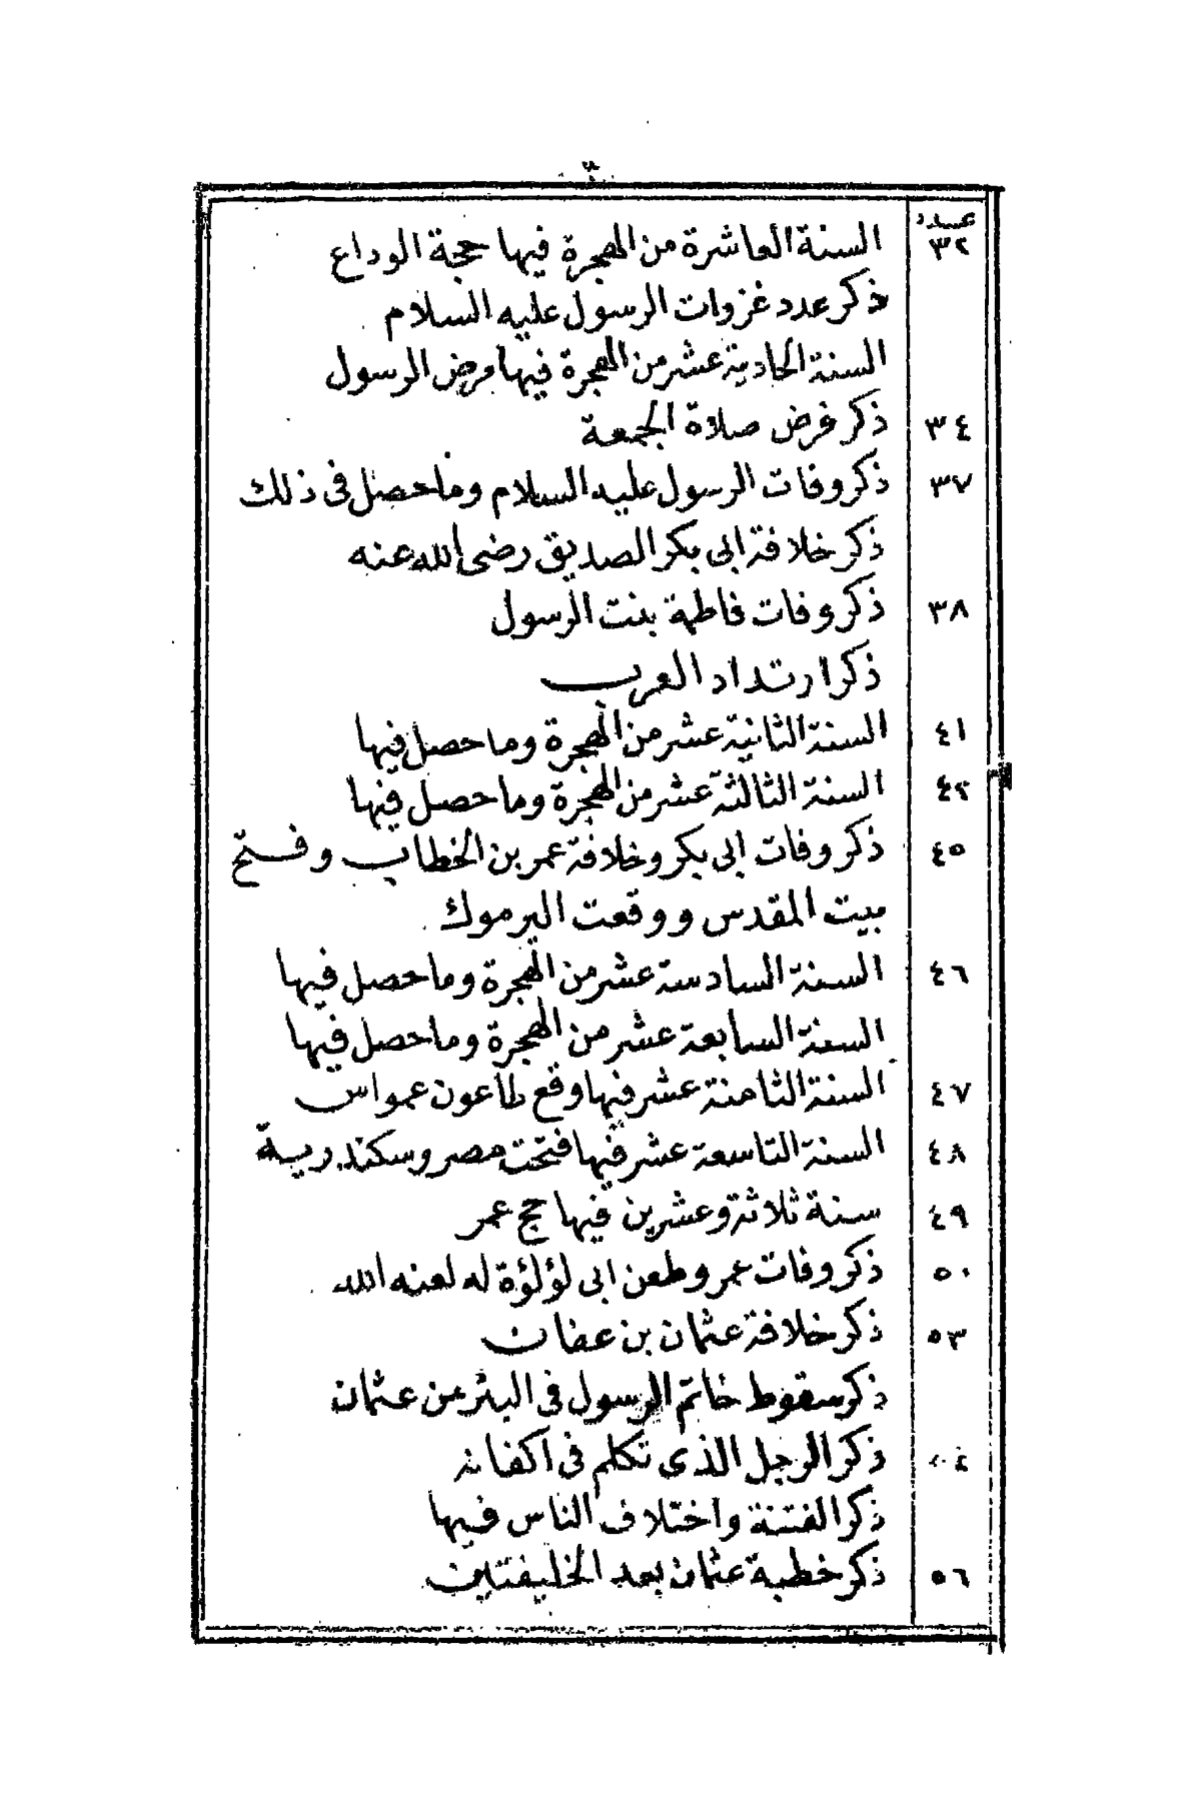 عدد
٣٢ السنة العاشرة من الهجرة فيها حجة الوداع
ذكر عدد غزوات الرسول عليه السلام
السنة الحادية عشر من الهجرة فيها مرض الرسول
٣٤ ذكر فرض صلاة الجمعة
٣٧ ذكر وفات الرسول عليه السلام وما حصل فى ذلك
ذكر خلافة ابى بكر الصديق رضى الله عنه
٣٨ ذكر وفات فاطمة بنت الرسول
ذكر ارتداد العرب
٤١ السنة الثانية عشر من الهجرة وما حصل فيها
٤٢ السنة الثالثة عشر من الهجرة وما حصل فيها
٤٥ ذكر وفات ابى بكر وخلافة عمر بن الخطاب وفتح
بيت المقدس ووقعت اليرموك
٤٦ السنة السادسة عشر من الهجرة وما حصل فيها
السنة السابعة عشر من الهجرة وما حصل فيها
٤٧ السنة الثامنة عشر فيها وقع طاعون عمواس
٤٨ السنة التاسعة عشر فيها فتحت مصر وسكندرية
٤٩ سنة ثلاثة وعشرين فيها حج عمر
٥٠ ذكر وفات عمر وطعن ابى لؤلؤة له لعنه الله
٥٣ ذكر خلافة عثمان بن عفان
ذكر سقوط خاتم الرسول فى البئر من عثمان
ذكر الرجل الذى تكلم فى اكفانه
ذكر الفتنة واختلاف الناس فيها
٥٦ ذكر خطبة عثمان بعد الخليفتين